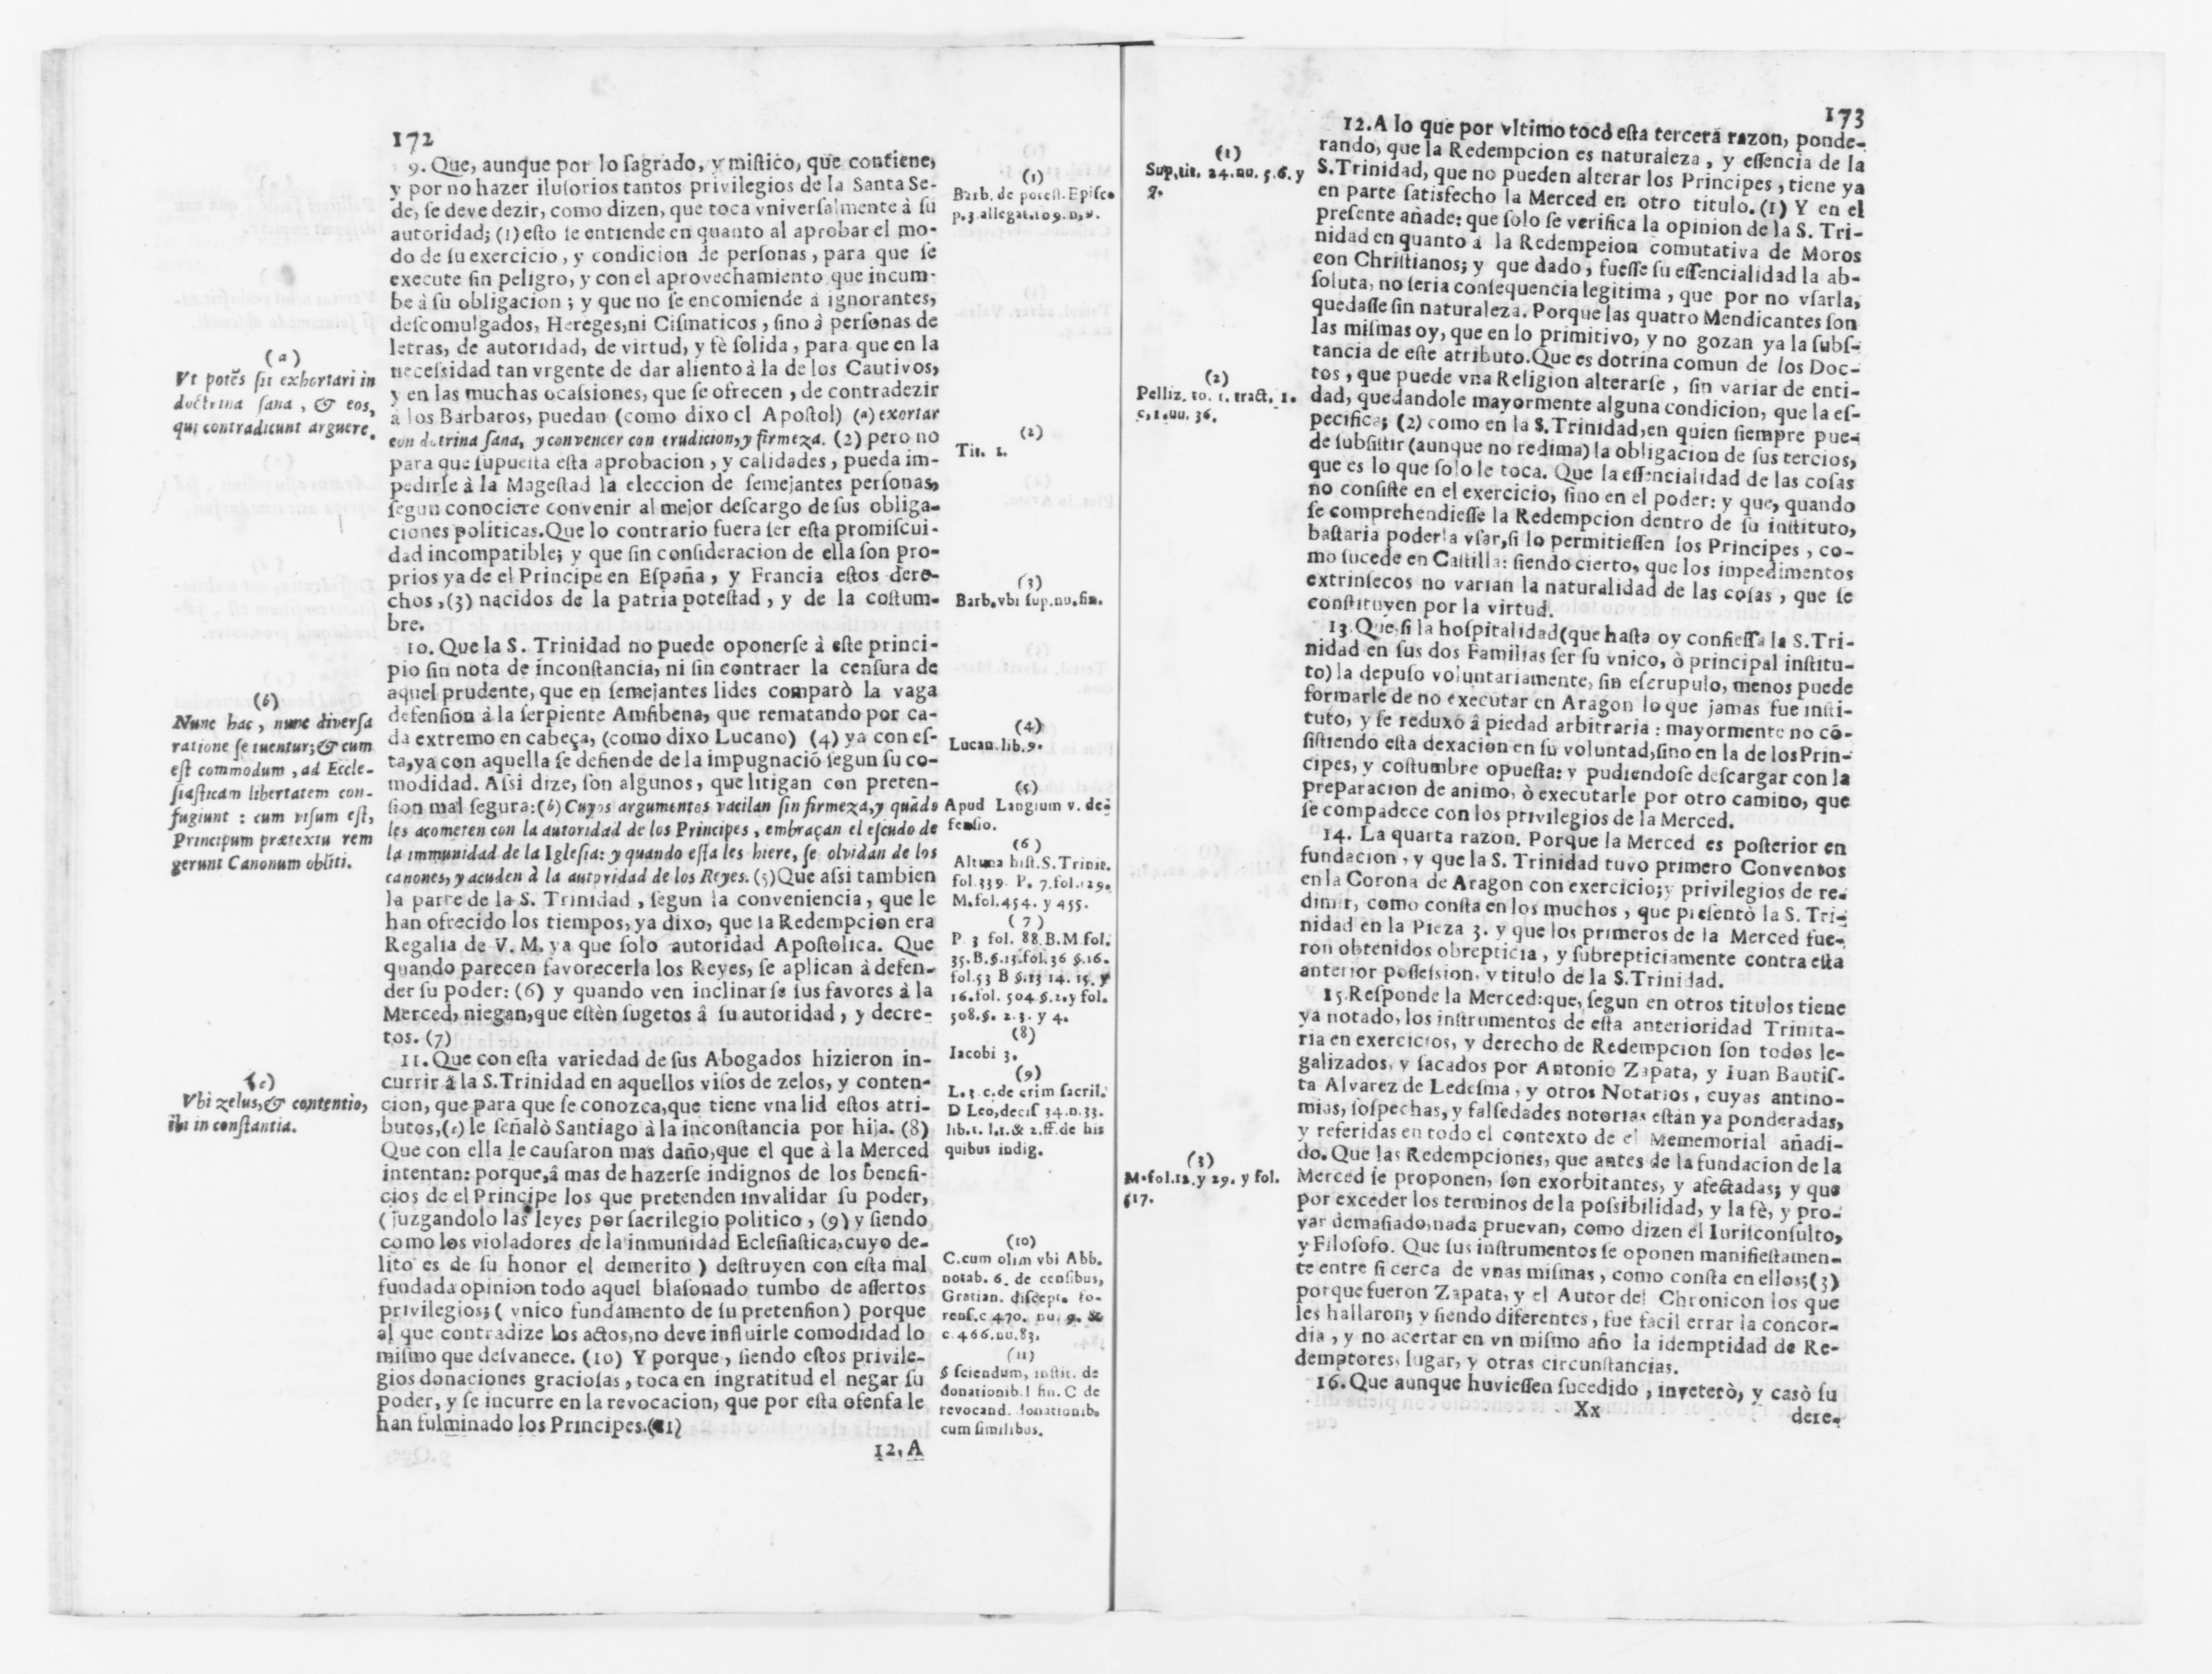 172
9. Que, aunque por lo ſagrado, y miſtico, que contiene,
y por no hazer iluſorios tantos privilegios de la Santa Se-
de, ſe deve dezir, como dizen, que toca vniverſalmente à ſu
autoridad; (1) eſto ſe entiende en quanto al aprobar el mo-
do de ſu exercicio, y condicion de perſonas, para que ſe
execute ſin peligro, y con el aprovechamiento que incum-
be à ſu obligacion; y que no ſe encomiende à ignorantes,
deſcomulgados, Hereges, ni Ciſmaticos, ſino à perſonas de
letras, de autoridad, de virtud, y fè ſolida, para que en la
neceſsidad tan vrgente de dar aliento à la de los Cautivos,
y en las muchas ocaſsiones, que ſe ofrecen, de contradezir
à los Barbaros, puedan (como dixo el Apoſtol) (a) exortar
con dotrina ſana, y convencer con erudicion, y firmeza. (2) pero no
para que ſupueſta eſta aprobacion, y calidades, pueda im-
pedirſe à la Mageſtad la eleccion de ſemejantes perſonas,
ſegun conociere convenir al mejor deſcargo de ſus obliga-
ciones politicas. Que lo contrario fuera ſer eſta promiſcui-
dad incompatible; y que ſin conſideracion de ella ſon pro-
prios ya de el Principe en Eſpaña, y Francia eſtos dere-
chos, (3) nacidos de la patria poteſtad, y de la coſtum-
bre.
10. Que la S. Trinidad no puede oponerſe à eſte princi-
pio ſin nota de inconſtancia, ni ſin contraer la cenſura de
aquel prudente, que en ſemejantes lides comparò la vaga
defenſion à la ſerpiente Amfibena, que rematando por ca-
da extremo en cabeça, (como dixo Lucano) (4) ya con eſ-
ta, ya con aquella ſe defiende de la impugnaciõ ſegun ſu co-
modidad. Aſsi dize, ſon algunos, que litigan con preten-
ſion mal ſegura: (b) Cuyos argumentos vacilan ſin firmeza, y quãdo
les acometen con la autoridad de los Principes, embraçan el eſcudo de
la immunidad de la Igleſia: y quando eſta les hiere, ſe olvidan de los
canones, y acuden à la autoridad de los Reyes. (5) Que aſsi tambien
la parte de la S. Trinidad, ſegun la conveniencia, que le
han ofrecido los tiempos, ya dixo, que la Redempcion era
Regalia de V. M. ya que ſolo autoridad Apoſtolica. Que
quando parecen favorecerla los Reyes, ſe aplican à defen-
der ſu poder: (6) y quando ven inclinarſe ſus favores à la
Merced, niegan, que eſtèn ſugetos â ſu autoridad, y decre-
tos. (7)
11. Que con eſta variedad de ſus Abogados hizieron in-
currir à la S. Trinidad en aquellos viſos de zelos, y conten-
cion, que para que ſe conozca, que tiene vna lid eſtos atri-
butos, (c) le ſeñalò Santiago à la inconſtancia por hija. (8)
Que con ella le cauſaron mas daño, que el que à la Merced
intentan: porque, â mas de hazerſe indignos de los benefi-
cios de el Principe los que pretenden invalidar ſu poder,
(juzgandolo las leyes por ſacrilegio politico, (9) y ſiendo
como los violadores de la inmunidad Ecleſiaſtica, cuyo de-
lito es de ſu honor el demerito) deſtruyen con eſta mal
fundada opinion todo aquel blaſonado tumbo de aſſertos
privilegios; (vnico fundamento de ſu pretenſion) porque
al que contradize los actos, no deve influirle comodidad lo
miſmo que deſvanece. (10) Y porque, ſiendo eſtos privile-
gios donaciones gracioſas, toca en ingratitud el negar ſu
poder, y ſe incurre en la revocacion, que por eſta ofenſa le
han fulminado los Principes. (11)
12. A
(a)
Vt potẽs ſit exhortari in
doctrina ſana, & eos,
qui contradicunt arguere.
(b)
Nunc hac, nunc diverſa
ratione ſe tuentur; & cum
eſt commodum, ad Eccle-
ſiaſticam libertatem con-
fugiunt: cum viſum eſt,
Principum prætextu rem
gerunt Canonum obliti.
(c)
Vbi zelus, & contentio,
ibi inconſtantia.
(1)
Barb. de poteſt. Epiſco
p. 3 allegat. 109. n,
(2)
Tit. 1.
(3)
Barb. vbi ſup. nu. fin.
(4)
Lucan. lib. 9.
(5)
Apud Langium v. de-
fenſio.
(6)
Altuna hiſt. S. Trinit.
fol. 339. P. 7. fol. 129.
M. fol. 454. y 455.
(7)
P. 3 fol. 88. B. M. fol.
35. B. §. 13. fol. 36 §. 16.
fol. 53 B §. 13 14. 15. y
16. fol. 504 §. 2. y fol.
508. §. 2. 3. y 4.
(8)
Iacobi 3.
(9)
L. 3 c. de crim ſacril.
D Leo, deciſ 34. n. 33.
lib. 1. l. 1. & 2. ff. de his
quibus indig.
(10)
C. cum olim vbi Abb.
notab. 6. de cenſibus,
Gratian. diſcept. fo-
renſ. c 470. nu. 9. &
c. 466. nu. 83.
(11)
§ ſciendum, inſtit. de
donationib. l fin. C de
revocand. donationib.
cum ſimilibus.
173
12. A lo que por vltimo tocò eſta tercera razon, ponde-
rando, que la Redempcion es naturaleza, y eſſencia de la
S. Trinidad, que no pueden alterar los Principes, tiene ya
en parte ſatisfecho la Merced en otro titulo. (1) Y en el
preſente añade: que ſolo ſe verifica la opinion de la S. Tri-
nidad en quanto à la Redempcion comutativa de Moros
con Chriſtianos; y que dado, fueſſe ſu eſſencialidad la ab-
ſoluta, no ſeria conſequencia legitima, que por no vſarla,
quedaſſe ſin naturaleza. Porque las quatro Mendicantes ſon
las miſmas oy, que en lo primitivo, y no gozan ya la ſubſ-
tancia de eſte atributo. Que es dotrina comun de los Doc-
tos, que puede vna Religion alterarſe, ſin variar de enti-
dad, quedandole mayormente alguna condicion, que la eſ-
pecifica; (2) como en la S. Trinidad, en quien ſiempre pue-
de ſubſiſtir (aunque no redima) la obligacion de ſus tercios,
que es lo que ſolo le toca. Que la eſſencialidad de las coſas
no conſiſte en el exercicio, ſino en el poder: y que, quando
ſe comprehendieſſe la Redempcion dentro de ſu inſtituto,
baſtaria poderla vſar, ſi lo permitieſſen los Principes, co-
mo ſucede en Caſtilla: ſiendo cierto, que los impedimentos
extrinſecos no varian la naturalidad de las coſas, que ſe
conſtituyen por la virtud.
13. Que, ſi la hoſpitalidad (que haſta oy confieſſa la S. Tri-
nidad en ſus dos Familias ſer ſu vnico, ò principal inſtitu-
to) la depuſo voluntariamente, ſin eſcrupulo, menos puede
formarle de no executar en Aragon lo que jamas fue inſti-
tuto, y ſe reduxo â piedad arbitraria: mayormente no cõ-
ſiſtiendo eſta dexacion en ſu voluntad, ſino en la de los Prin-
cipes, y coſtumbre opueſta: y pudiendoſe deſcargar con la
preparacion de animo, ò executarle por otro camino, que
ſe compadece con los privilegios de la Merced.
14. La quarta razon. Porque la Merced es poſterior en
fundacion, y que la S. Trinidad tuvo primero Conventos
en la Corona de Aragon con exercicio; y privilegios de re-
dimir, como conſta en los muchos, que preſentò la S. Tri-
nidad en la Pieza 3. y que los primeros de la Merced fue-
ron obtenidos obrepticia, y ſubrepticiamente contra eſta
anterior poſſeſsion, y titulo de la S. Trinidad.
15. Reſponde la Merced: que, ſegun en otros titulos tiene
ya notado, los inſtrumentos de eſta anterioridad Trinita-
ria en exercicios, y derecho de Redempcion ſon todos le-
galizados, y ſacados por Antonio Zapata, y Iuan Bautiſ-
ta Alvarez de Ledeſma, y otros Notarios, cuyas antino-
mias, ſoſpechas, y falſedades notorias eſtàn ya ponderadas,
y referidas en todo el contexto de el Mememorial añadi-
do. Que las Redempciones, que antes de la fundacion de la
Merced ſe proponen, ſon exorbitantes, y afectadas; y que
por exceder los terminos de la poſsibilidad, y la fè, y pro-
var demaſiado, nada pruevan, como dizen el Iuriſconſulto,
y Filoſofo. Que ſus inſtrumentos ſe oponen manifieſtamen-
te entre ſi cerca de vnas miſmas, como conſta en ellos; (3)
porque fueron Zapata, y el Autor del Chronicon los que
les hallaron; y ſiendo diferentes, fue facil errar la concor-
dia, y no acertar en vn miſmo año la idemptidad de Re-
demptores, lugar, y otras circunſtancias.
16. Que aunque huvieſſen ſucedido, inveterò, y casò ſu
Xx
dere-
(1)
Sup, tit. 24. nu. 5. 6. y
7.
(2)
Pelliz. to. 1. tract. 1.
c. 1. nu. 36.
(3)
M. fol. 12. y 29. y fol.
517.